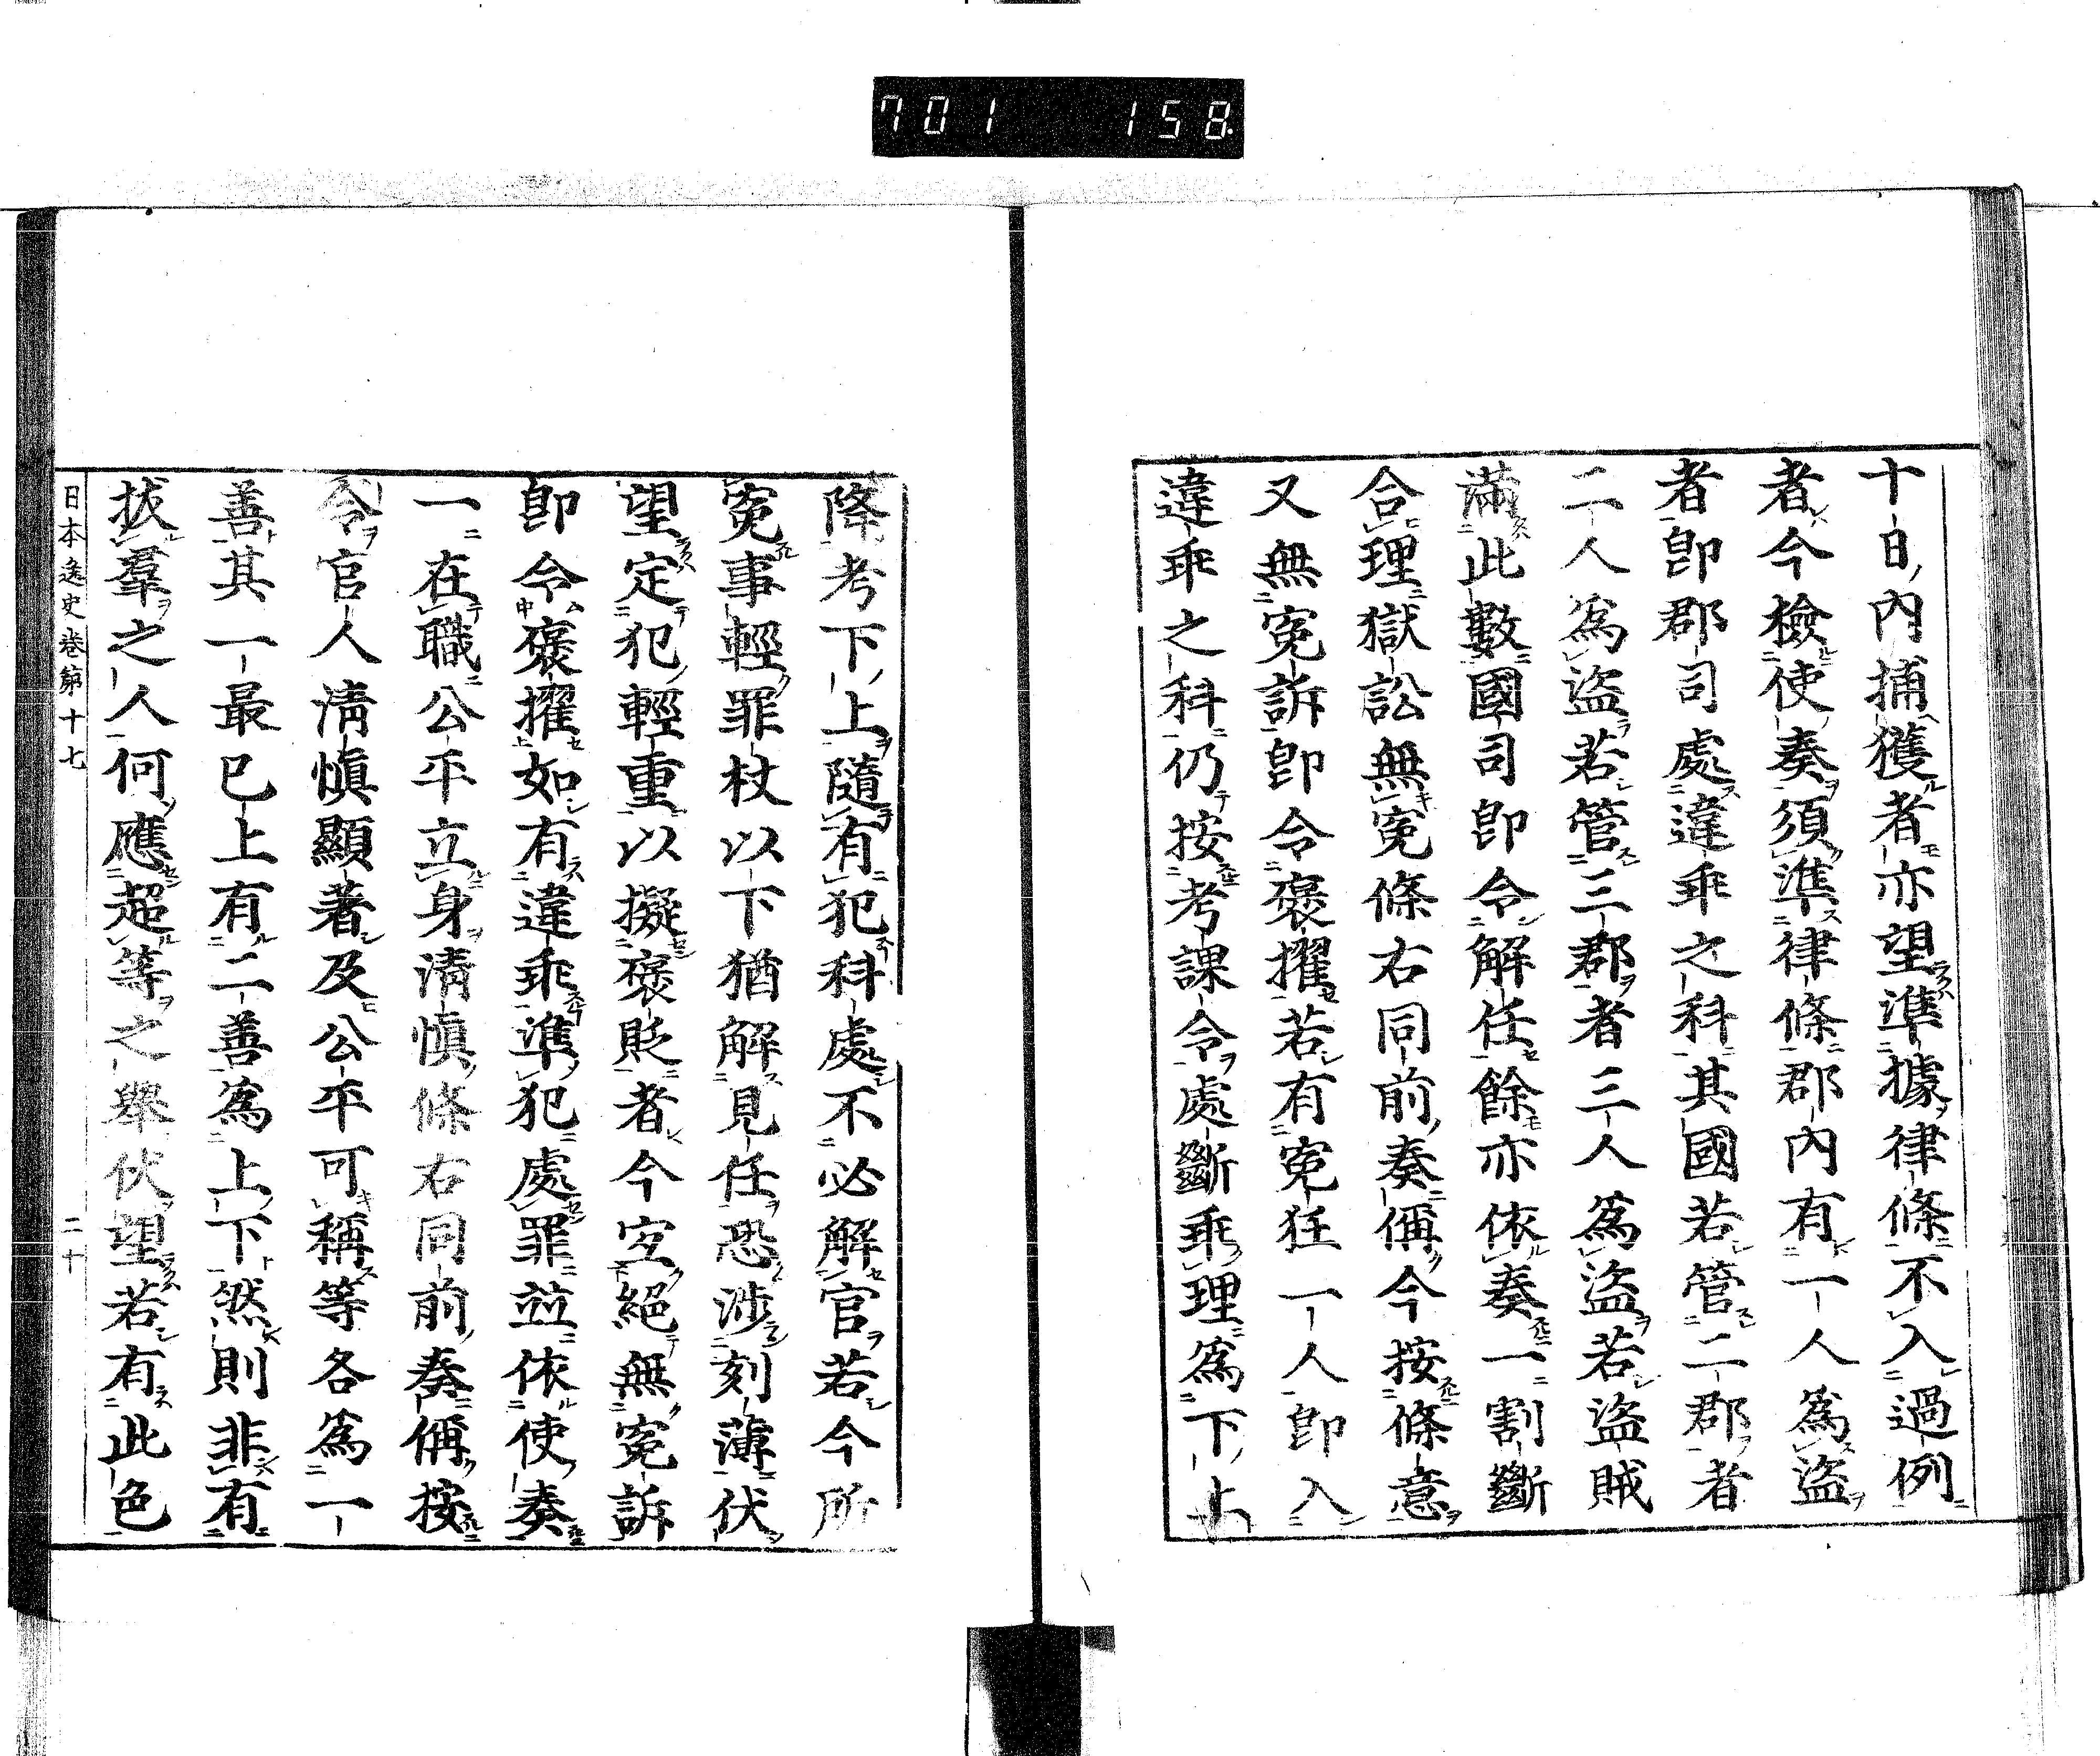 701 158
十日内捕獲者亦望準據律條不入過例
者今檢使奏須準律條郡内有一人為盜
者卽郡司處違乖之科其國若管二郡者
二人為盜若管三郡者三人為盜若盜賊
滿此數國司卽令解任餘亦依奏一割斷
合理獄訟無寃條右同前奏偁今按條意
又無寃訴卽令褒擢若有寃狂一人卽入
違乖之科仍按考課令處斷乖理為下上
降考下上隨有犯科處不必解官若今所
寃事輕罪杖以下猶解見任恐涉刻薄伏
望定犯輕重以擬褒貶者今定絕無寃訴
卽令褒擢如有違乖準犯處罪竝依使奏
一在職公平立身淸愼條右同前奏偁按
令官人淸愼顯著及公平可稱等各為一
善其一最已上有二善為上下然則非有
拔羣之人何應超等之舉伏望若有此色
日本逸史卷第十七 二十